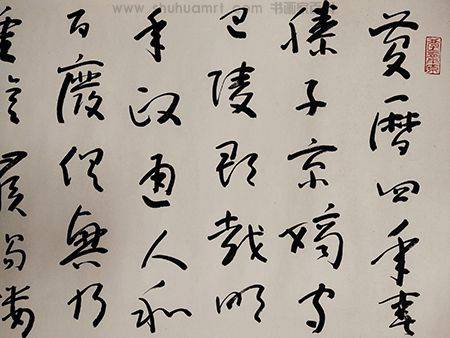 www.shuhuamrt.com
慶曆四年春
滕子京謫守
巴陵郡越明
年政通人和
百廢俱興乃
重